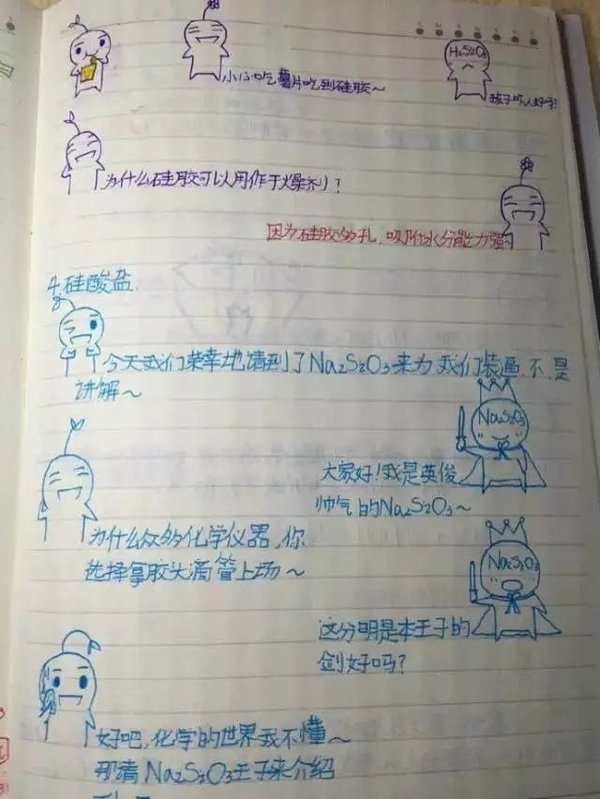 小心吃薯片吃到硅胶～
H₂S2O₃
为什么硅胶可以用作干燥剂？
因为硅胶多孔，吸附水分能力强
4.硅酸盐
今天我们荣幸地请到了Na₂S2O₃来为我们装逼，不是
讲解～
Na₂S2O₃
大家好！我是英俊
帅气的Na₂S2O₃～
为什么众多化学仪器，你
选择拿胶头滴管上场～
Na₂S2O₃
这分明是本王子的
剑好吗？
好吧，化学的世界我不懂～
那请Na₂S2O₃王子来介绍